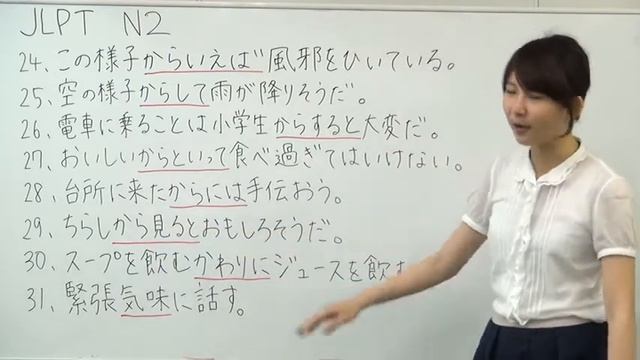 JLPT N2
24、この様子からいえば風邪をひいている。
25、空の様子からして雨が降りそうだ。
26、電車に乗ることは小学生からすると大変だ。
27、おいしいからといって食べ過ぎてはいけない。
28、台所に来たからには手伝おう。
29、ちらしから見るとおもしろそうだ。
30、スープを飲むかわりにジュースを飲む
31、緊張気味に話す。